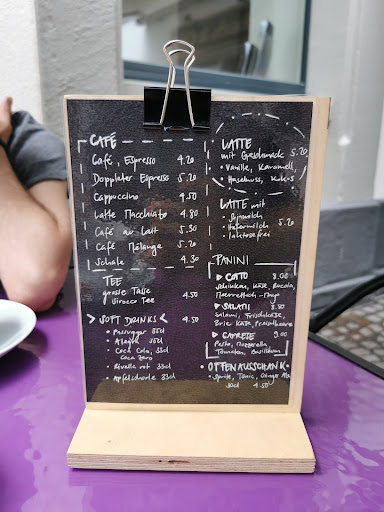 CAFÉ
Café, Espresso 4.20
Doppleter Espresso 5.20
Cappuccino 4.50
Latte Macchiato 4.80
Café au lait 5.30
Café Mélange 5.20
Schale 4.30
TEE
grosse Tasse
Sirocco Tee 4.50
> SOFT DRINKS < 4.50
• Passugger 35cl
• Alegra 35cl
• Coca Cola, 33cl
Coca Zero
• Rivella rot 33cl
• Apfelschorle 33cl
LATTE
mit Geschmack 5.20
• Vanille, Karamell,
• Haselnuss,
LATTE mit
• Sojamilch
• Hafermilch 5.20
• laktosefrei
PANINI
▶ COTTO 9.00
Schinken, Käse, Rucola,
▶ SALAMI
Salami, Frischkäse,
Brie Käse,
▶ CAPRESE 9.00
Pesto, Mozzarella,
Tomaten, Basilikum
• OFFENAUSSCHANK •
• Sprite, Tonic, Ginger
30cl 4.50